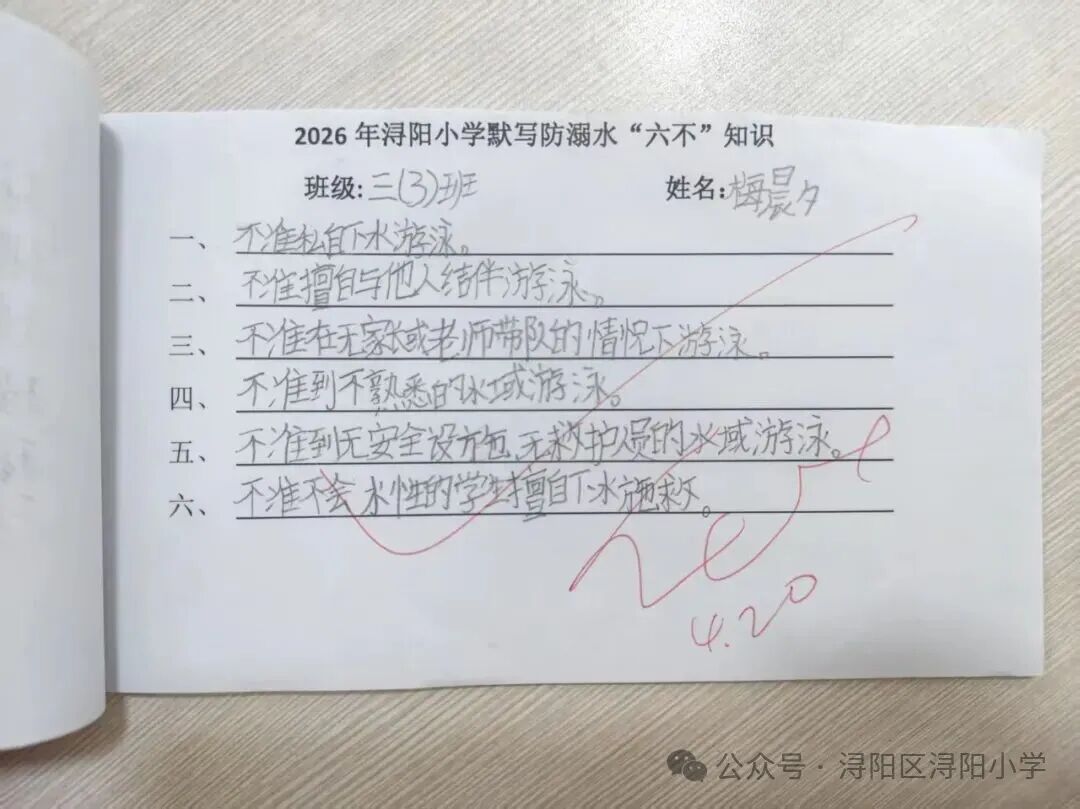 2026年浔阳小学默写防溺水“六不”知识
班级:三(3)班 姓名:梅晨夕
一、不准私自下水游泳。
二、不准擅自与他人结伴游泳。
三、不准在无家长或老师带队的情况下游泳。
四、不准到不熟悉的水域游泳。
五、不准到无安全设施、无救护员的水域游泳。
六、不准不会水性的学生擅自下水施救。
4.20
公众号·浔阳区浔阳小学